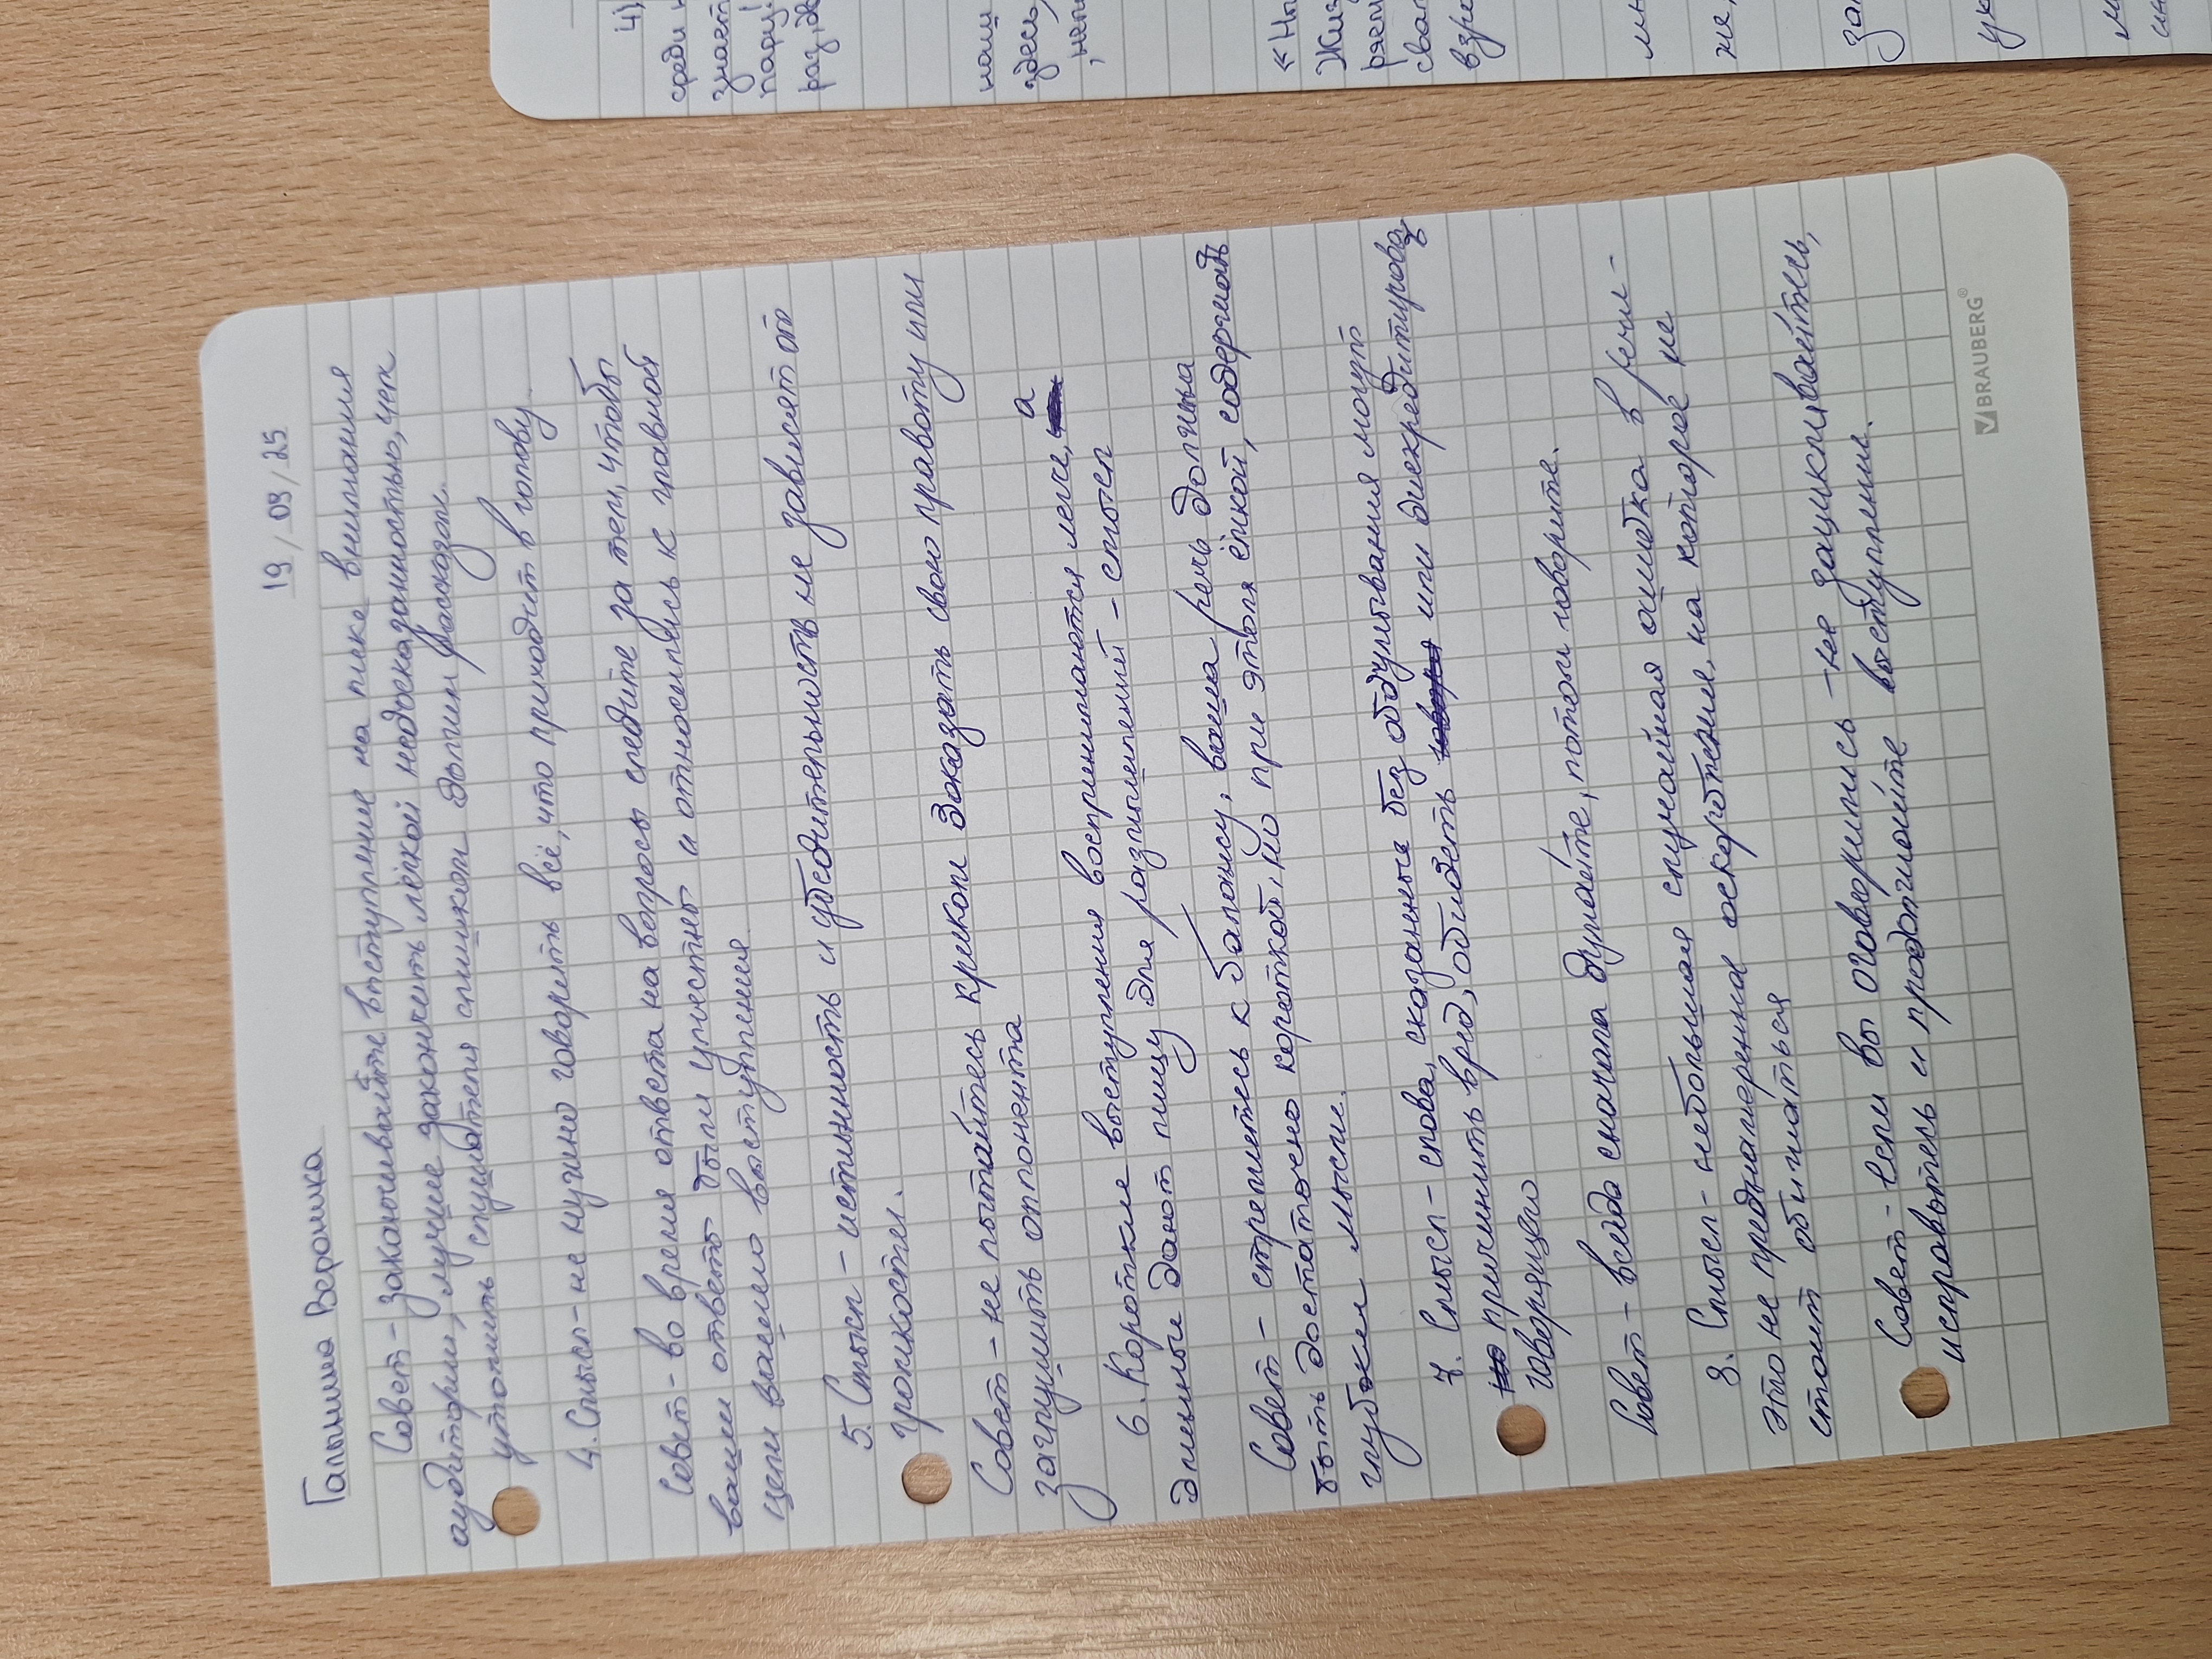 Галынина Вероника
19/09/25
Совет - заканчивайте выступление на пике внимания
аудитории, лучше закончить лёгкой недосказанностью, чем
утомить слушателя слишком долгим рассказом.
4. Смысл - не нужно говорить всё, что приходит в голову.
Совет - во время ответа на вопросы следите за тем, чтобы
ваши ответы были уместны и относились к главной
цели вашего выступления.
5. Смысл - истинность и убедительность не зависят от
громкости.
Совет - не пытайтесь криком доказать свою правоту или
заглушить оппонента
6. Короткие выступления воспринимаются легче, а
длинные дают пищу для размышлений - смысл
Совет - стремитесь к балансу, ваша речь должна
быть достаточно короткой, но при этом ёмкой, содержать
глубокие мысли.
7. Смысл - слова, сказанные без обдумывания могут
причинить вред, обидеть или дискредитировать
говорящего
Совет - всегда сначала думайте, потом говорите.
8. Смысл - небольшая случайная ошибка в речи -
это не преднамеренное оскорбление, на которое не
стоит обижаться
Совет - если вы оговорились - не зацикливайтесь,
исправьтесь и продолжайте выступление.
BRAUBERG®
4)
среди
знает
раз, дв
наш
здесь,
«Ны
Жиз
взре
не,